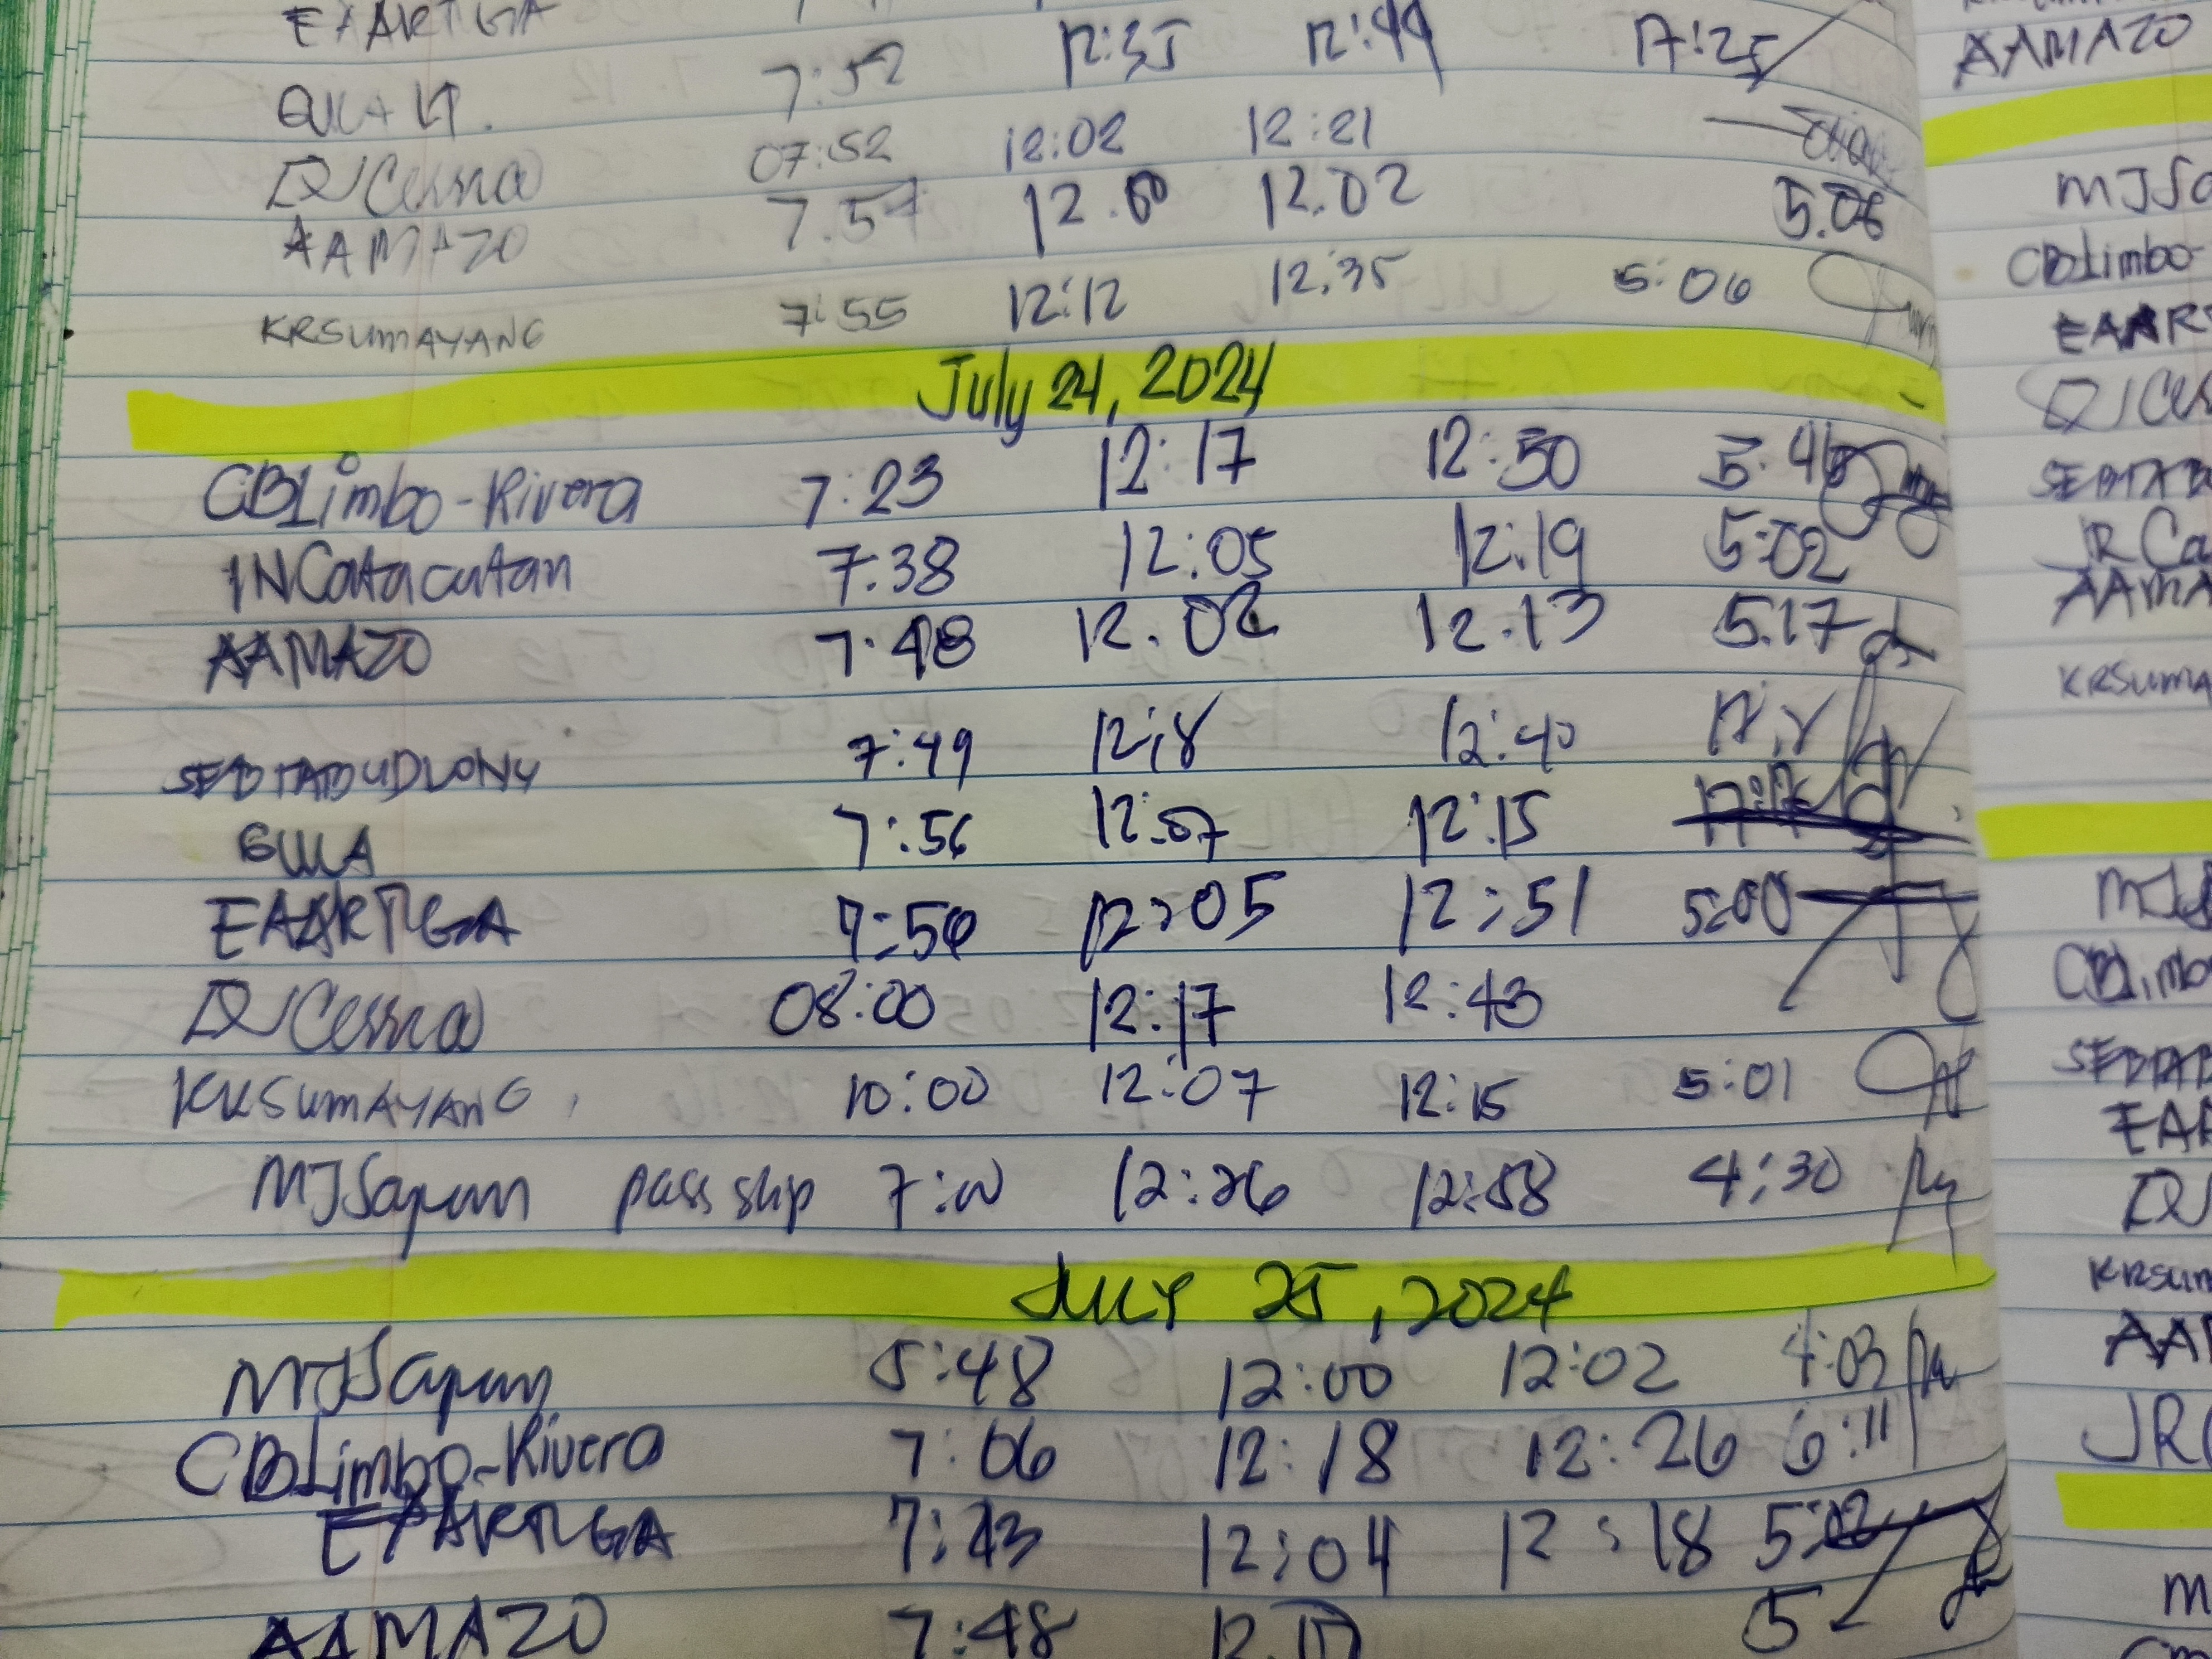 EAARTGA
7:52 12:35 12:44 17:25
QUIAIT.
07:52 12:02 12:21
DJCessna
7.57 12.00 12.02 5.06
AAMAZO
KRSUMAYANG 7:55 12:12 12:35 5:06
July 24, 2024
CBLimbo-Rivera 7:23 12:17 12:50 5:46
INCatacutan 7:38 12:05 12:19 5:02
AAMAZO 7:48 12.02 12.13 5.17
SEBTABUDLONG 7:49 12:18 12:40
GULA 7:56 12:07 12:15
EAARTGA 7:56 12:05 12:51 5:00
08:00 12:17 12:43
KRSUMAYANG 10:00 12:07 12:15 5:01
MJSapun pass slip 7:00 12:26 12:58 4:30
JULY 25, 2024
MJSapun 5:48 12:00 12:02 4:03
CBLimbo-Rivera 7:06 12:18 12:26 6:11
EAARTGA 7:43 12:04 12:18 5:02
AAMAZO 7:48 5
AAMAZO
MJSa
CBLimbo-
EAAR
SEBTAB
JRCa
AAMA
KRSUMA
CBLimbo
SEBTAB
EAA
KRSUM
AAM
JRC
M